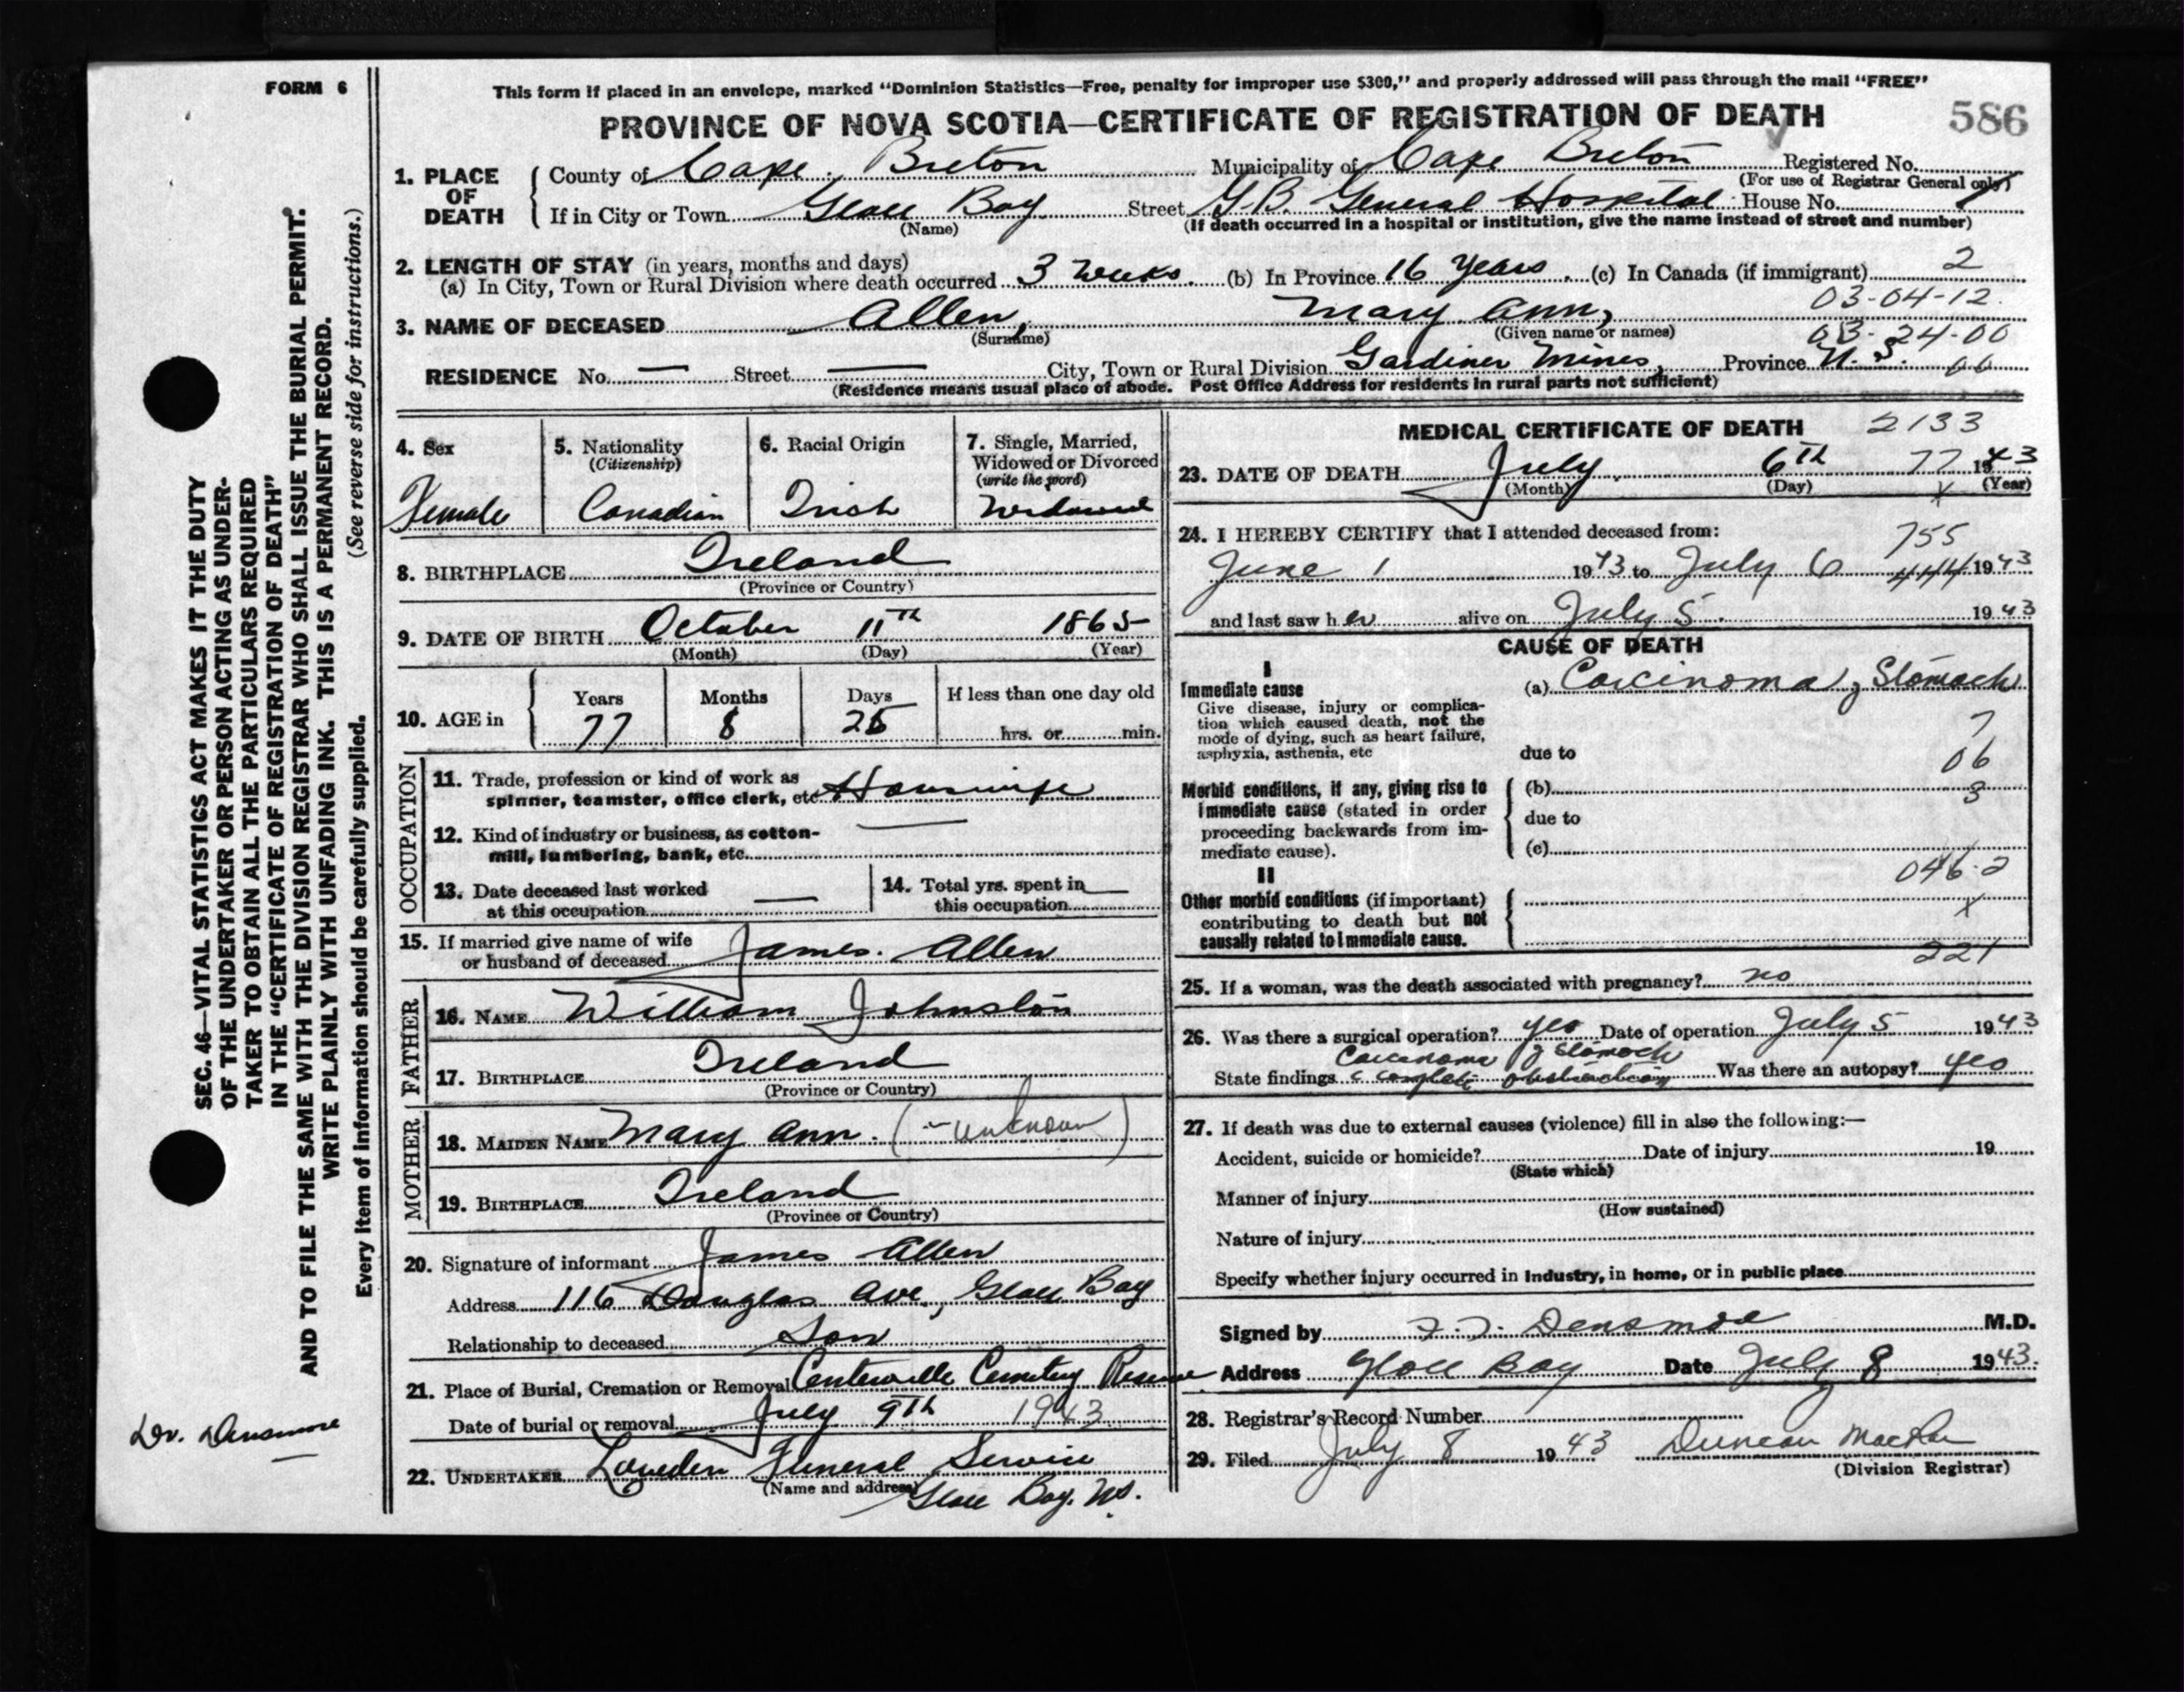 FORM 6
This form if placed in an envelope, marked "Dominion Statistics—Free, penalty for improper use $300," and properly addressed will pass through the mail "FREE"
PROVINCE OF NOVA SCOTIA—CERTIFICATE OF REGISTRATION OF DEATH
586
1. PLACE OF DEATH
County of Cape Breton Municipality of Cape Breton Registered No.
(For use of Registrar General only)
If in City or Town Glace Bay Street G.B. General Hospital House No.
(Name) (If death occurred in a hospital or institution, give the name instead of street and number)
2. LENGTH OF STAY (in years, months and days)
(a) In City, Town or Rural Division where death occurred 3 weeks. (b) In Province 16 years. (c) In Canada (if immigrant) 2
03-04-12.
3. NAME OF DECEASED Allen, Mary Ann,
(Surname) (Given name or names) 03-24-00
RESIDENCE No. — Street — City, Town or Rural Division Gardiner Mines, Province N.S. 06
(Residence means usual place of abode. Post Office Address for residents in rural parts not sufficient)
4. Sex
Female
5. Nationality
(Citizenship)
Canadian
6. Racial Origin
Irish
7. Single, Married, Widowed or Divorced
(write the word)
Widowed
8. BIRTHPLACE Ireland
(Province or Country)
9. DATE OF BIRTH October 11th 1865
(Month) (Day) (Year)
10. AGE in Years Months Days If less than one day old
77 8 25 hrs. or min.
OCCUPATION
11. Trade, profession or kind of work as
spinner, teamster, office clerk, etc. Housewife
12. Kind of industry or business, as cotton-
mill, lumbering, bank, etc. —
13. Date deceased last worked
at this occupation —
14. Total yrs. spent in
this occupation —
15. If married give name of wife
or husband of deceased James. Allen
FATHER
16. NAME William Johnston
17. BIRTHPLACE Ireland
(Province or Country)
MOTHER
18. MAIDEN NAME Mary Ann. (- unknown)
19. BIRTHPLACE Ireland
(Province or Country)
20. Signature of informant James Allen
Address 116 Douglas Ave., Glace Bay
Relationship to deceased Son
21. Place of Burial, Cremation or Removal Centerville Cemetery Reserve
Date of burial or removal July 9th 1943
22. UNDERTAKER Funeral Service
(Name and address) Glace Bay. N.S.
MEDICAL CERTIFICATE OF DEATH 2133
23. DATE OF DEATH July 6th 77 1943
(Month) (Day) X (Year)
24. I HEREBY CERTIFY that I attended deceased from: 755
June 1 1943 to July 6 444 1943
and last saw her alive on July 5. 1943
CAUSE OF DEATH
I
Immediate cause
Give disease, injury or complica-
tion which caused death, not the
mode of dying, such as heart failure,
asphyxia, asthenia, etc
(a) Carcinoma of Stomach
7
due to 06
Morbid conditions, if any, giving rise to
immediate cause (stated in order
proceeding backwards from im-
mediate cause).
(b) 3
due to
(c)
046.2
II
Other morbid conditions (if important)
contributing to death but not
causally related to immediate cause.
X
221
25. If a woman, was the death associated with pregnancy? no
26. Was there a surgical operation? yes Date of operation July 5 1943
State findings Carcinoma of Stomach c complete obstruction Was there an autopsy? yes
27. If death was due to external causes (violence) fill in also the following:—
Accident, suicide or homicide? Date of injury 19
(State which)
Manner of injury
(How sustained)
Nature of injury
Specify whether injury occurred in industry, in home, or in public place
Signed by Densmore M.D.
Address Glace Bay Date July 8 1943.
28. Registrar's Record Number
29. Filed July 8 1943 Duncan MacRae
(Division Registrar)
SEC. 46—VITAL STATISTICS ACT MAKES IT THE DUTY
OF THE UNDERTAKER OR PERSON ACTING AS UNDER-
TAKER TO OBTAIN ALL THE PARTICULARS REQUIRED
IN THE "CERTIFICATE OF REGISTRATION OF DEATH"
AND TO FILE THE SAME WITH THE DIVISION REGISTRAR WHO SHALL ISSUE THE BURIAL PERMIT.
WRITE PLAINLY WITH UNFADING INK. THIS IS A PERMANENT RECORD.
Every item of information should be carefully supplied. (See reverse side for instructions.)
Dr. Densmore